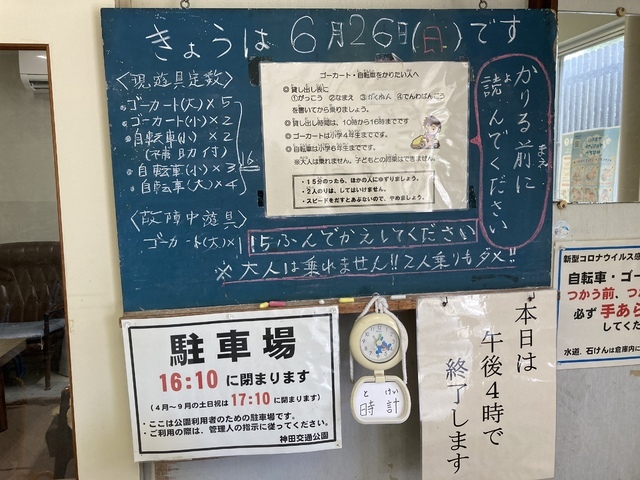 きょうは6月26日(日)です
〈現遊具定数〉
・ゴーカート(大)×5
・ゴーカート(小)×2
・自転車(小)×2
(補助付)
・自転車(小)×3
・自転車(大)×4
16
〈故障中遊具〉
ゴーカート(大)×1
ゴーカート・自転車をかりたい人へ
◎貸し出し表に
①がっこう ②なまえ ③がくねん ④でんわばんごう
を書いてから乗りましょう。
◎貸し出し時間は、10時から16時までです
◎ゴーカートは小学4年生までです。
◎自転車は小学6年生までです。
※大人は乗れません。子どもとの同乗はできません。
・15分のったら、ほかの人にゆずりましょう。
・2人のりは、してはいけません。
・スピードをだすとあぶないので、やめましょう。
かりる前に
まえ
読んでください
よ
15ふんでかえしてください
※大人は乗れません!!2人乗りもダメ!!
駐車場
16:10に閉まります
(4月〜9月の土日祝は17:10に閉まります)
・ここは公園利用者のための駐車場です。
・ご利用の際は、管理人の指示に従ってください。
神田交通公園
とけい
時計
本日は
午後4時で
終了します
新型コロナウイルス感
自転車・ゴー
つかう前、つか
必ず手あら
してくだ
水道、石けんは倉庫内に